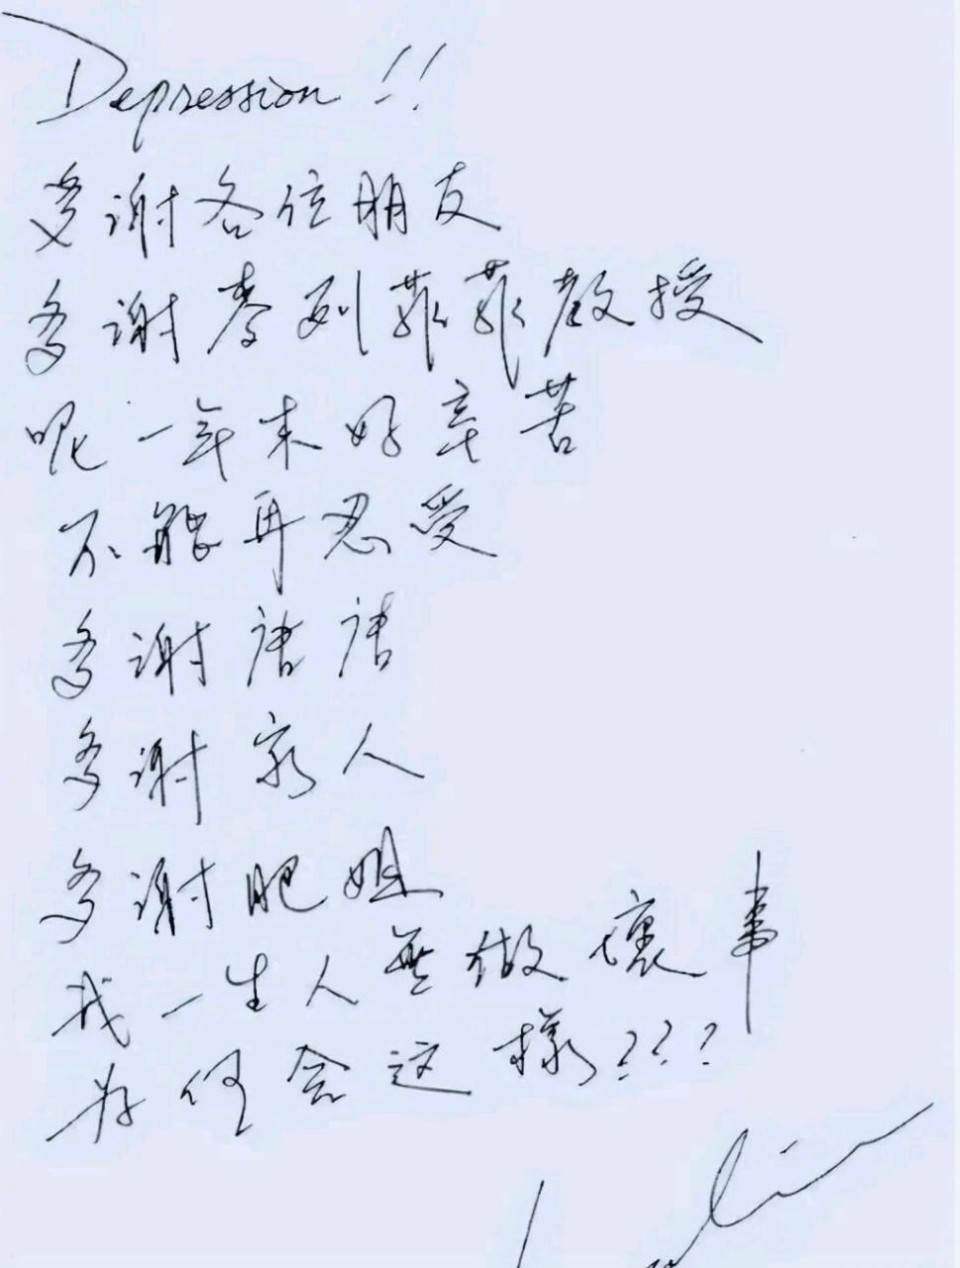 Depression !!
多謝各位朋友
多謝麥列菲菲教授
呢一年來好辛苦
不能再忍受
多謝唐唐
多謝家人
多謝肥姐
我一生人無做壞事
為何會这樣???